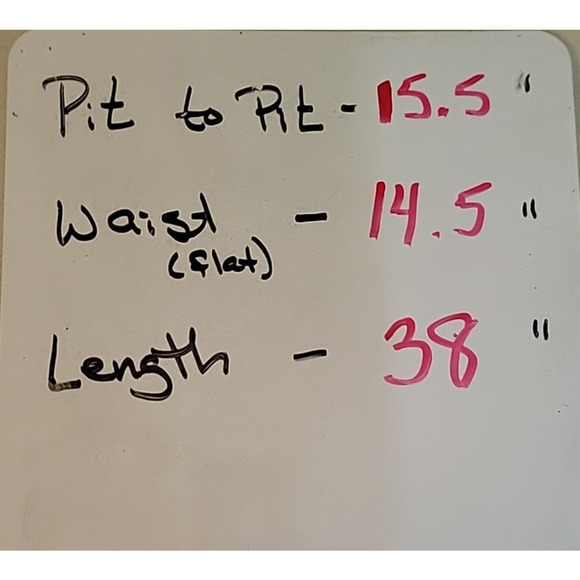 Pit to Pit - 15.5 "
Waist - 14.5 "
(flat)
Length - 38 "